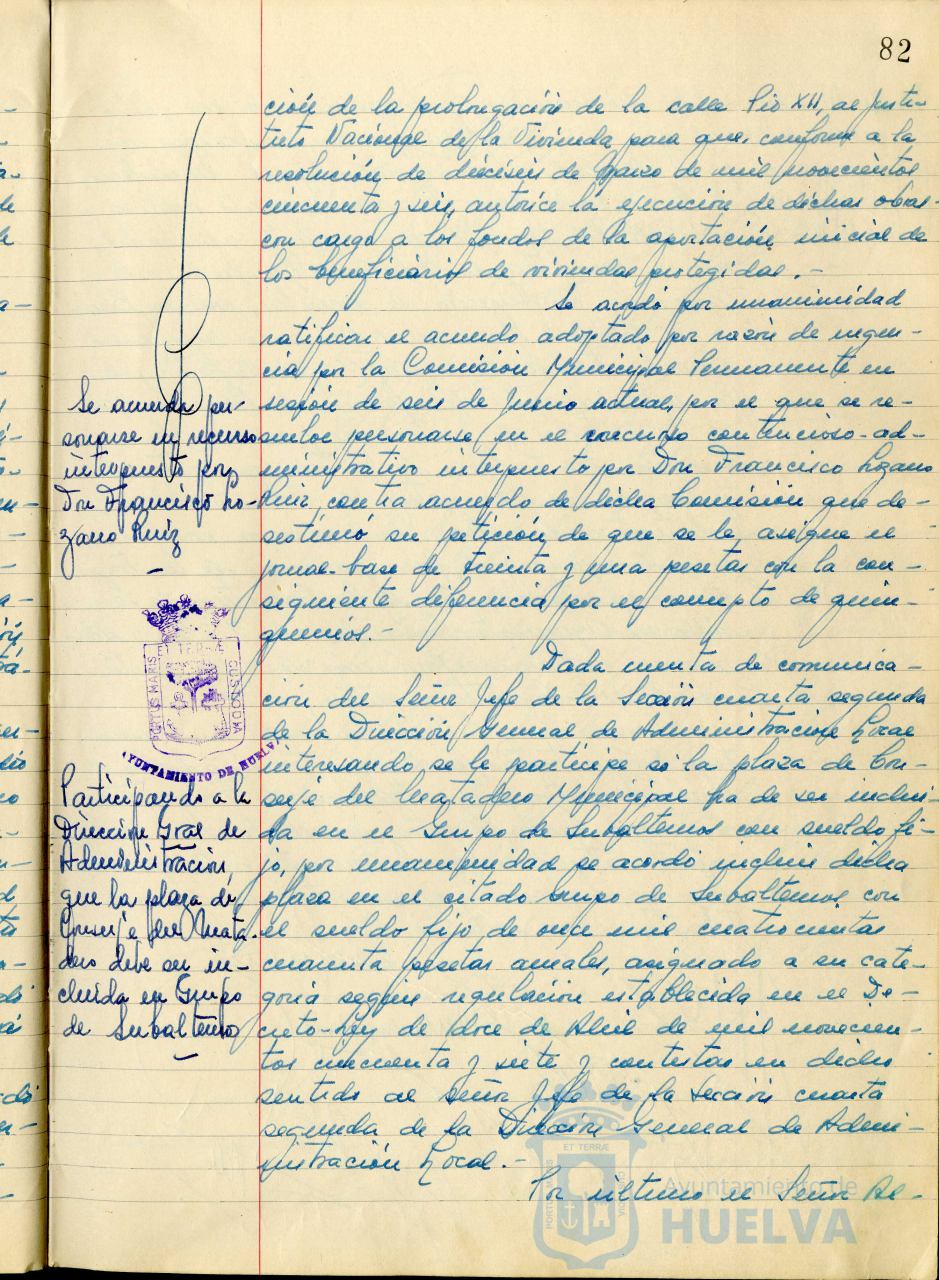 82
ción de la prolongación de la calle Pio XII, al Insti-
tuto Nacional de la Vivienda para que, conforme a la
resolución de dieciséis de Marzo de mil novecientos
cincuenta y seis, autorice la ejecución de dichas obras
con cargo a los fondos de la aportación inicial de
los beneficiarios de viviendas protegidas.-
Se acordó por unanimidad
ratificar el acuerdo adoptado por razón de urgen-
cia por la Comisión Municipal Permanente en
sesión de seis de Junio actual, por el que se re-
suelve personarse en el recurso contencioso-ad-
ministrativo interpuesto por Don Francisco Lozano
Ruiz, contra acuerdo de dicha Comisión que de-
sestimó su petición de que se le asigne el
jornal-base de treinta y una pesetas con la con-
siguiente diferencia por el concepto de quin-
quenios.-
Se acuerda per-
sonarse en recurso
interpuesto por
Don Francisco Lo-
zano Ruiz
Dada cuenta de comunica-
ción del Señor Jefe de la Sección cuarta segunda
de la Dirección General de Administración Local
interesando se le participe si la plaza de Con-
serje del Matadero Municipal ha de ser inclui-
da en el Grupo de Subalternos con sueldo fi-
jo, por unanimidad se acordó incluir dicha
plaza en el citado Grupo de Subalternos con
el sueldo fijo de once mil cuatrocientas
cuarenta pesetas anuales, asignado a su cate-
goría según regulación establecida en el De-
creto-Ley de doce de Abril de mil novecien-
tos cincuenta y siete y contestar en dicho
sentido al señor Jefe de la Sección cuarta
segunda de la Dirección General de Admi-
nistración Local.-
Por último el Señor Al-
PORTUS MARIS
ET TERRÆ
CUSTODIA
AYUNTAMIENTO DE HUELVA
Participando a la
Dirección Gral de
Administración,
que la plaza de
Conserje del Mata-
dero debe ser in-
cluida en Grupo
de Subalternos
ET TERRÆ
PORTUS MARIS
Ayuntamiento de
HUELVA